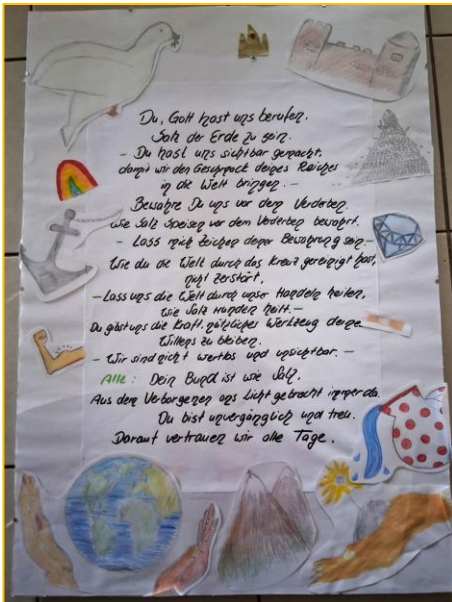 Du, Gott hast uns berufen.
Salz der Erde zu sein.
- Du hast uns sichtbar gemacht,
damit wir den Geschmack deines Reiches
in die Welt bringen. -
Bewahre Du uns vor dem Verderben.
Wie Salz Speisen vor dem Verderben bewahrt.
- Lass mich Zeichen deiner Bewahrung sein -
Wie du die Welt durch das Kreuz gereinigt hast,
nicht zerstört,
- Lass uns die Welt durch unser Handeln heilen,
wie Salz Wunden heilt. -
Du gibst uns die Kraft, nützliches Werkzeug deines
Willens zu bleiben.
- Wir sind nicht wertlos und unsichtbar. -
Alle: Dein Bund ist wie Salz.
Aus dem Verborgenen ans Licht gebracht immer da.
Du bist unvergänglich und treu.
Darauf vertrauen wir alle Tage.